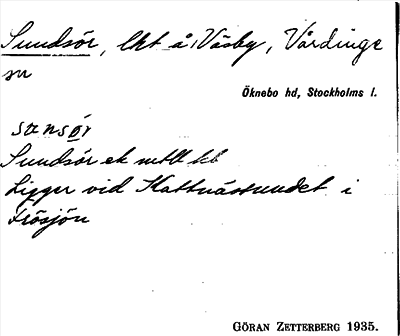 Sundsör, lht å Väsby, Vårdinge
sn
Öknebo hd, Stockholms l.
sunsör
Sundsör ek
Ligger vid Kattnässundet i
Frösjön
GÖRAN ZETTERBERG 1935.